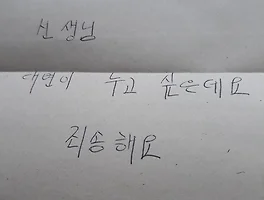 선생님
대변이 누고 싶은데요
죄송해요